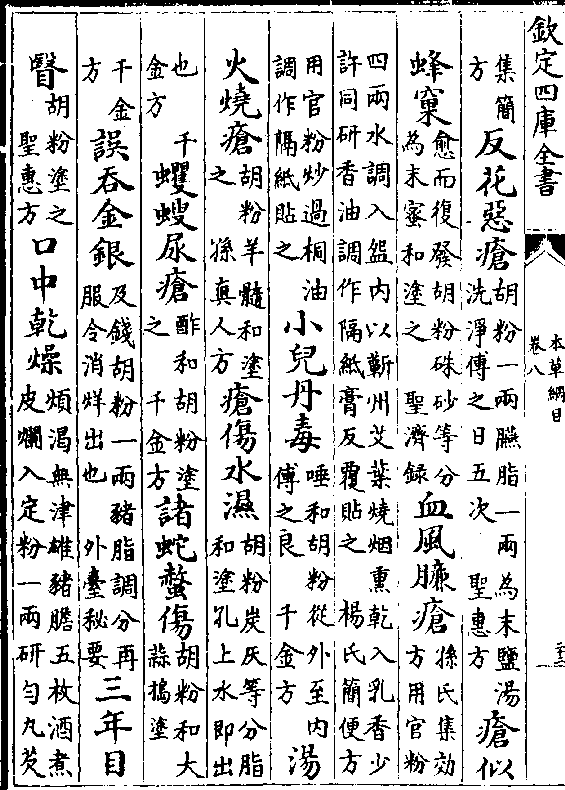 欽定四庫全書
本草綱目
卷八
集簡方 反花惡瘡 胡粉一兩臙脂一兩為末鹽湯洗淨傅之日五次 聖惠方 瘡似
蜂窠 愈而復發胡粉硃砂等分為末蜜和塗之 聖濟錄 血風臁瘡 孫氏集効方用官粉
四兩水調入盌内以蘄州艾葉燒烟熏乾入乳香少許同研香油調作隔紙膏反覆貼之 楊氏簡便方
用官粉炒過桐油調作隔紙貼之 小兒丹毒 唾和胡粉從外至内傅之良 千金方 湯
火燒瘡 胡粉羊髓和塗之 孫真人方 瘡傷水濕 胡粉炭灰等分脂和塗孔上水即出
也 千金方 蠼螋尿瘡 酢和胡粉塗之 千金方 諸蛇螫傷 胡粉和大蒜搗塗
千金方 誤吞金銀 及錢胡粉一兩豬脂調分再服令消烊出也 外臺秘要 三年目
瞖 胡粉塗之 聖惠方 口中乾燥 煩渴無津雄豬膽五枚酒煮皮爛入定粉一兩研勻丸芡